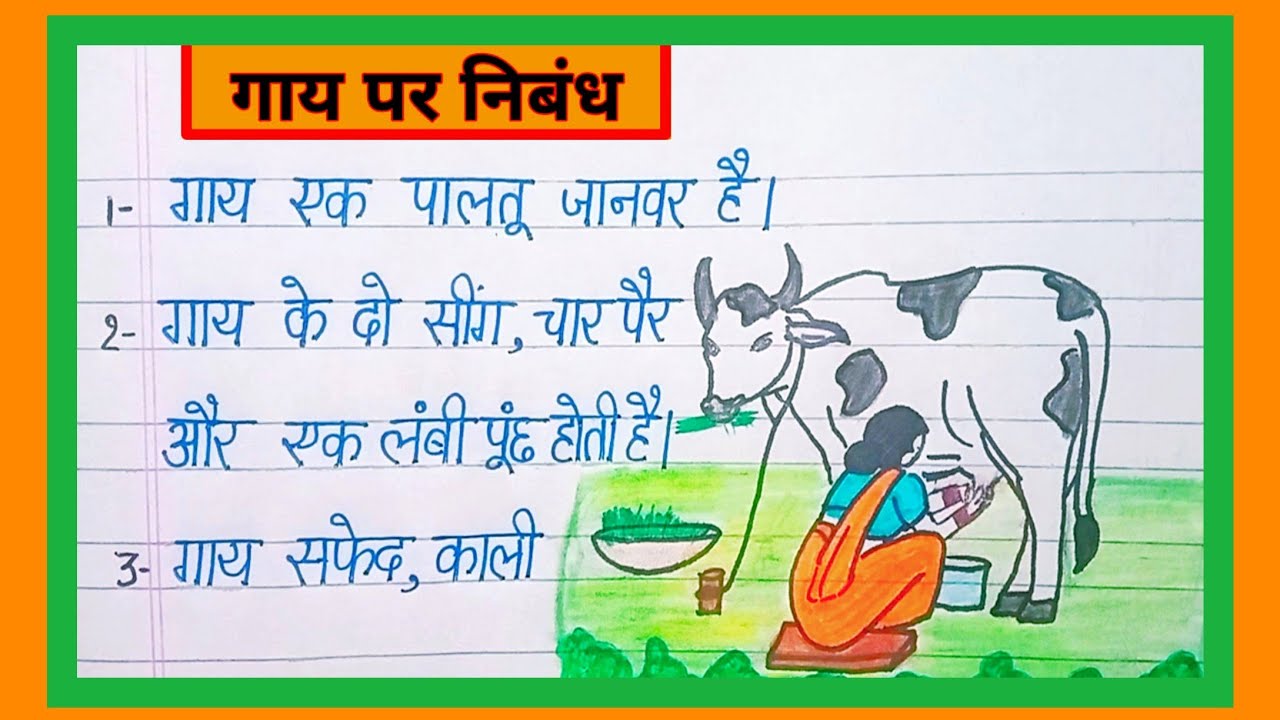 गाय पर निबंध
1- गाय एक पालतू जानवर है।
2- गाय के दो सींग, चार पैर
और एक लंबी पूंछ होती है।
3- गाय सफेद, काली